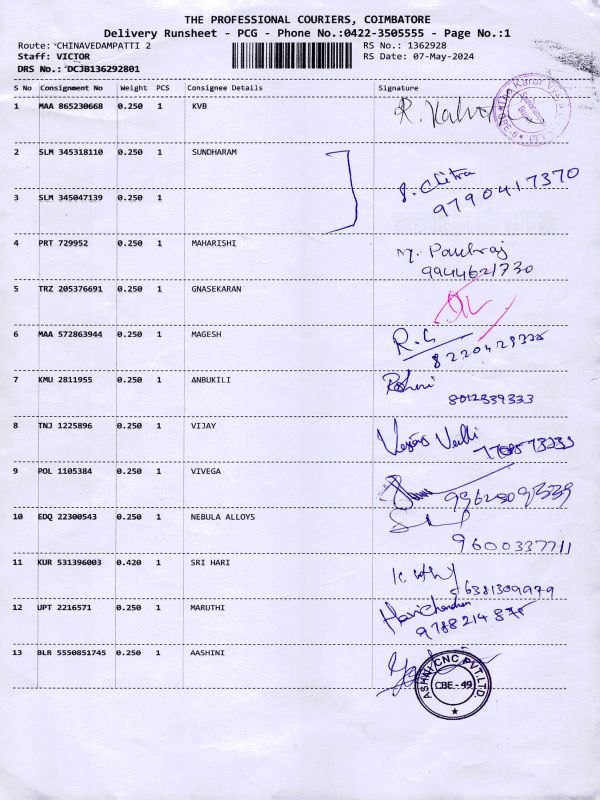 THE PROFESSIONAL COURIERS, COIMBATORE
Delivery Runsheet - PCG - Phone No.:0422-3505555 - Page No.:1
Route: CHINAVEDAMPATTI 2 RS No.: 1362928
Staff: VICTOR RS Date: 07-May-2024
DRS No.: DCJB136292801
S No Consignment No Weight PCS Consignee Details Signature
1 MAA 865230668 0.250 1 KVB
2 SLM 345318110 0.250 1 SUNDHARAM
S. Chitra
9790417370
3 SLM 345047139 0.250 1
4 PRT 729952 0.250 1 MAHARISHI
9944621730
5 TRZ 205376691 0.250 1 GNASEKARAN
6 MAA 572863944 0.250 1 MAGESH
R. G
7 KMU 2811955 0.250 1 ANBUKILI
8012339333
8 TNJ 1225896 0.250 1 VIJAY
9 POL 1105384 0.250 1 VIVEGA
10 EDQ 22300543 0.250 1 NEBULA ALLOYS
9600337711
11 KUR 531396003 0.420 1 SRI HARI
6381309979
12 UPT 2216571 0.250 1 MARUTHI
Harichandran
13 BLR 5550851745 0.250 1 AASHINI
ASHNI CNC PVT.LTD.
CBE-49